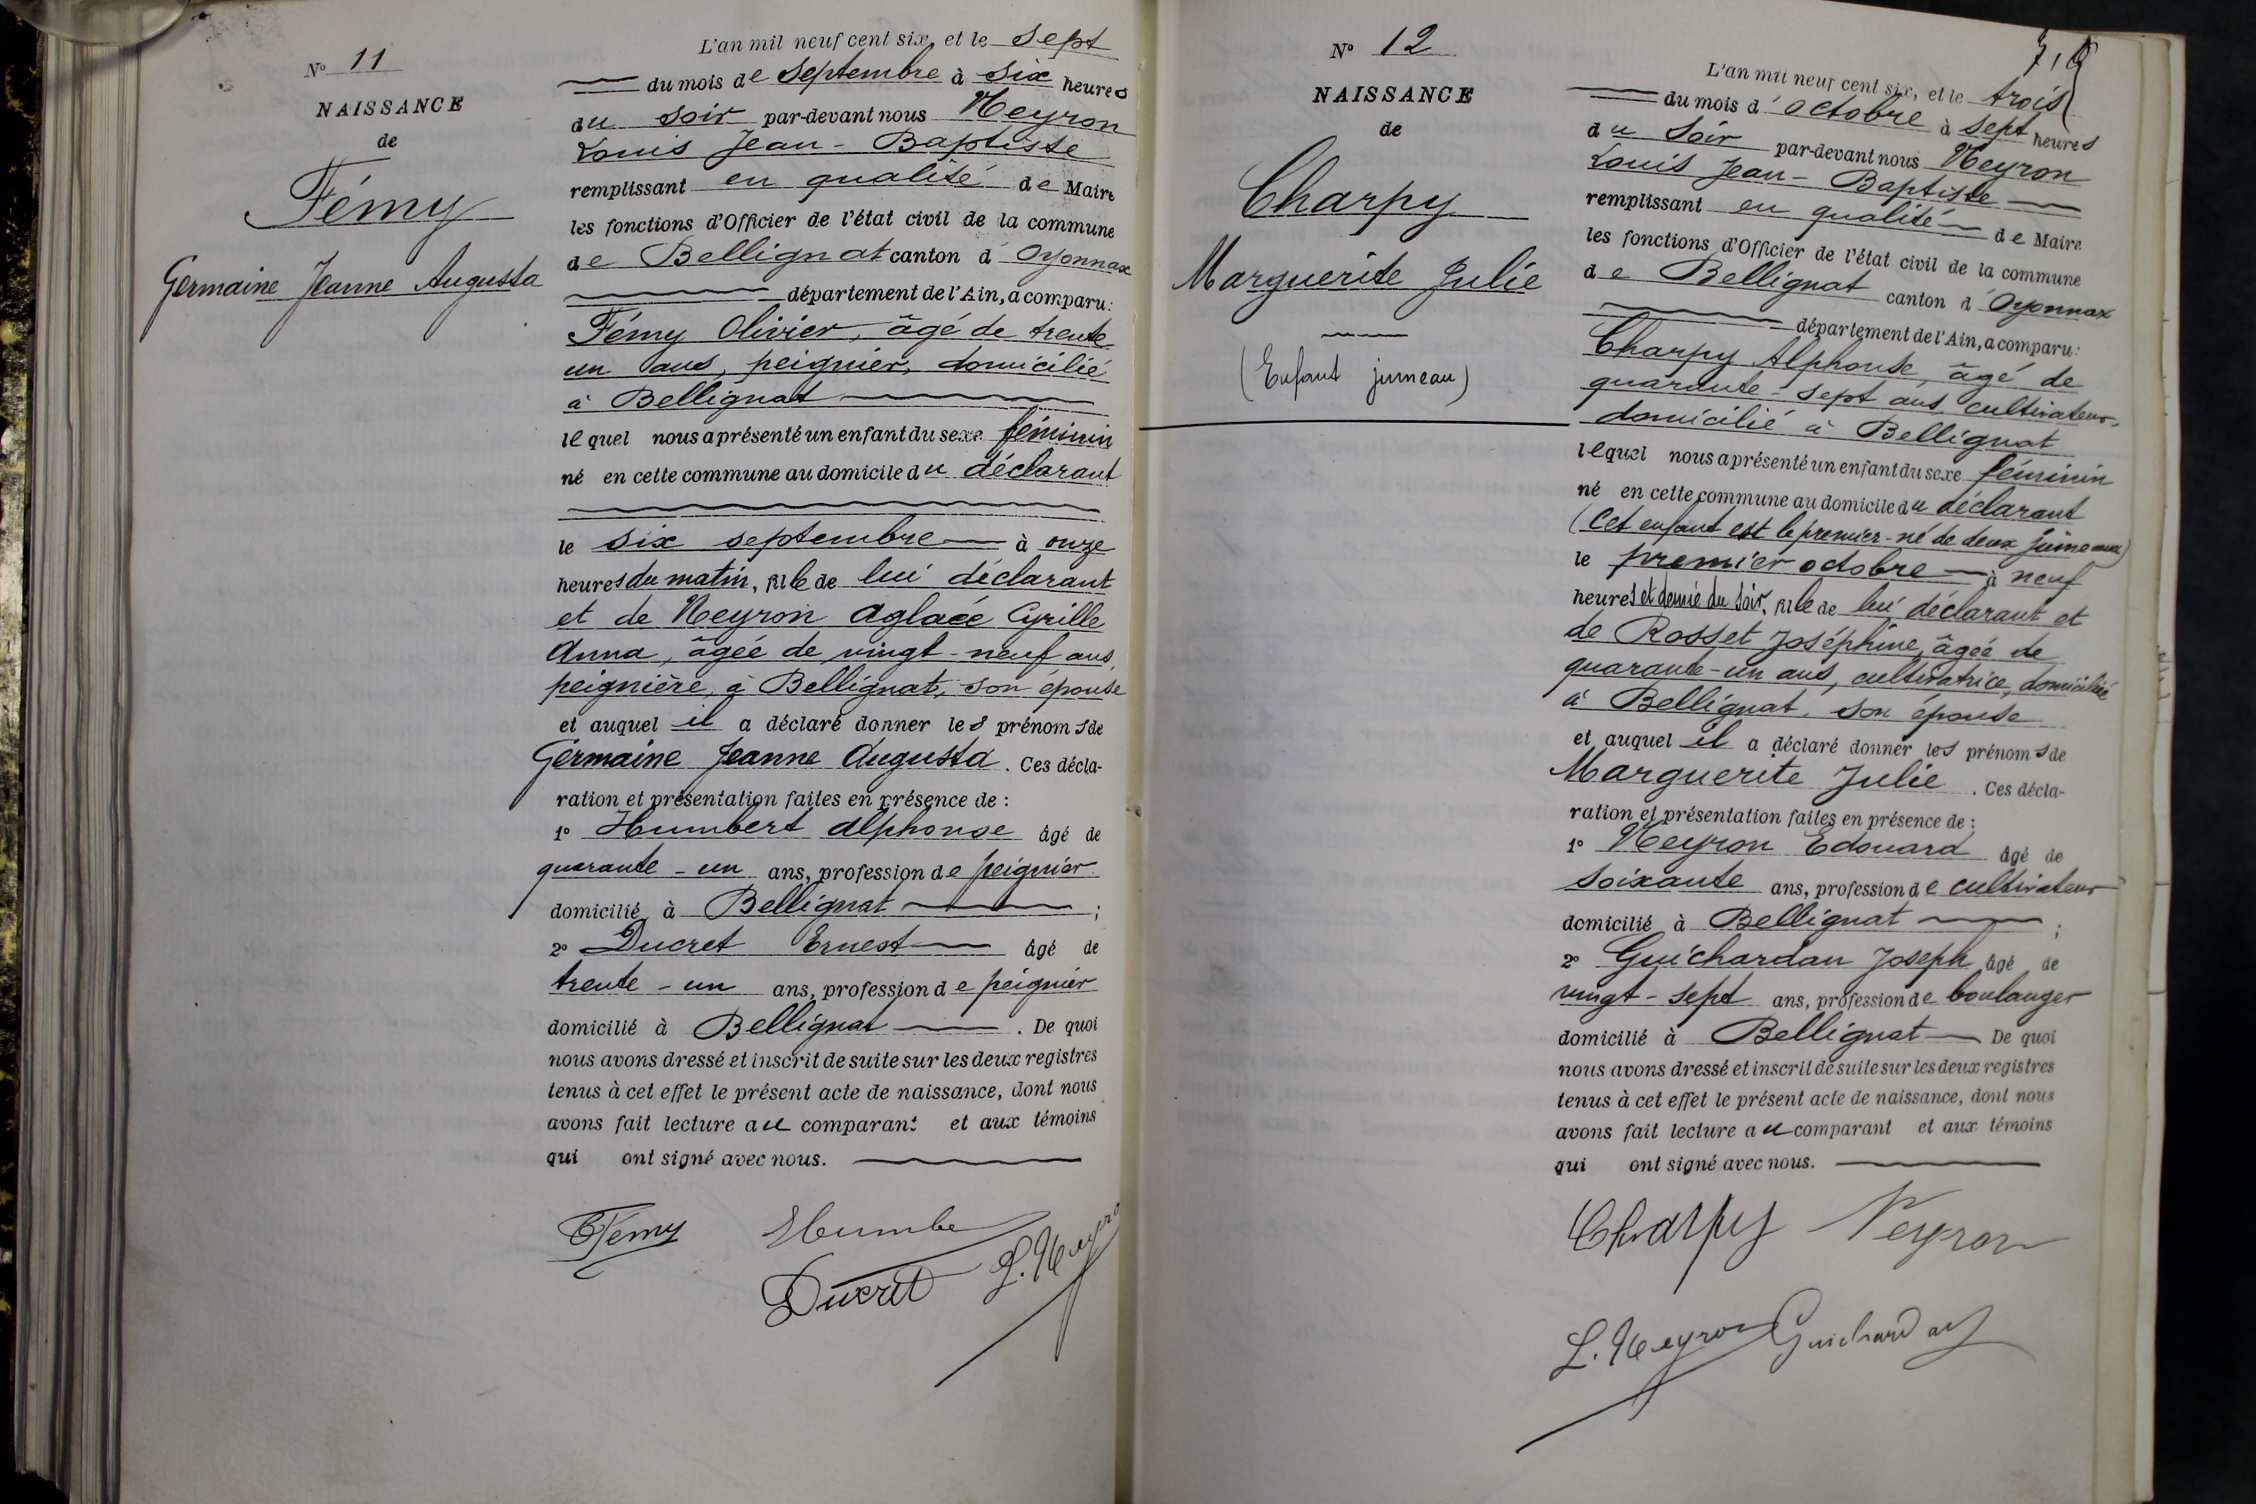 N° 11
NAISSANCE
de
Fémy
Germaine Jeanne Augusta
L'an mil neuf cent six, et le sept
du mois de septembre à six heures
du soir par-devant nous Neyron
Louis Jean-Baptiste
remplissant en qualité de Maire
les fonctions d'Officier de l'état civil de la commune
de Bellignat canton d'Oyonnax
département de l'Ain, a comparu:
Fémy Olivier, âgé de trente
un ans, peignier, domicilié
à Bellignat
lequel nous a présenté un enfant du sexe féminin
né en cette commune au domicile du déclarant
le six septembre à onze
heures du matin, fille de lui déclarant
et de Neyron Aglaée Cyrille
Anna, âgée de vingt-neuf ans,
peignière, à Bellignat, son épouse
et auquel il a déclaré donner les prénoms de
Germaine Jeanne Augusta. Ces décla-
ration et présentation faites en présence de :
1° Humbert Alphonse âgé de
quarante-un ans, profession de peignier
domicilié à Bellignat ;
2° Ducret Ernest âgé de
trente-un ans, profession de peignier
domicilié à Bellignat . De quoi
nous avons dressé et inscrit de suite sur les deux registres
tenus à cet effet le présent acte de naissance, dont nous
avons fait lecture au comparant et aux témoins
qui ont signé avec nous.
Fémy Humbe
Ducret L. Neyro
N° 12
NAISSANCE
de
Charpy
Marguerite Julie
(Enfant jumeau)
L'an mil neuf cent six, et le trois
du mois d'octobre à sept heures
du soir par-devant nous Neyron
Louis Jean-Baptiste
remplissant en qualité de Maire
les fonctions d'Officier de l'état civil de la commune
de Bellignat canton d'Oyonnax
département de l'Ain, a comparu:
Charpy Alphonse, âgé de
quarante-sept ans, cultivateur,
domicilié à Bellignat
lequel nous a présenté un enfant du sexe féminin
né en cette commune au domicile du déclarant
(Cet enfant est le premier-né de deux jumeaux)
le premier octobre à neuf
heures et demie du soir, fille de lui déclarant et
de Rosset Joséphine, âgée de
quarante-un ans, cultivatrice, domiciliée
à Bellignat, son épouse
et auquel il a déclaré donner les prénoms de
Marguerite Julie . Ces décla-
ration et présentation faites en présence de :
1° Neyron Edouard âgé de
soixante ans, profession de cultivateur
domicilié à Bellignat ;
2° Guichardan Joseph âgé de
vingt-sept ans, profession de boulanger
domicilié à Bellignat De quoi
nous avons dressé et inscrit de suite sur les deux registres
tenus à cet effet le présent acte de naissance, dont nous
avons fait lecture au comparant et aux témoins
qui ont signé avec nous.
Charpy Neyron
L. Neyron Guichardan